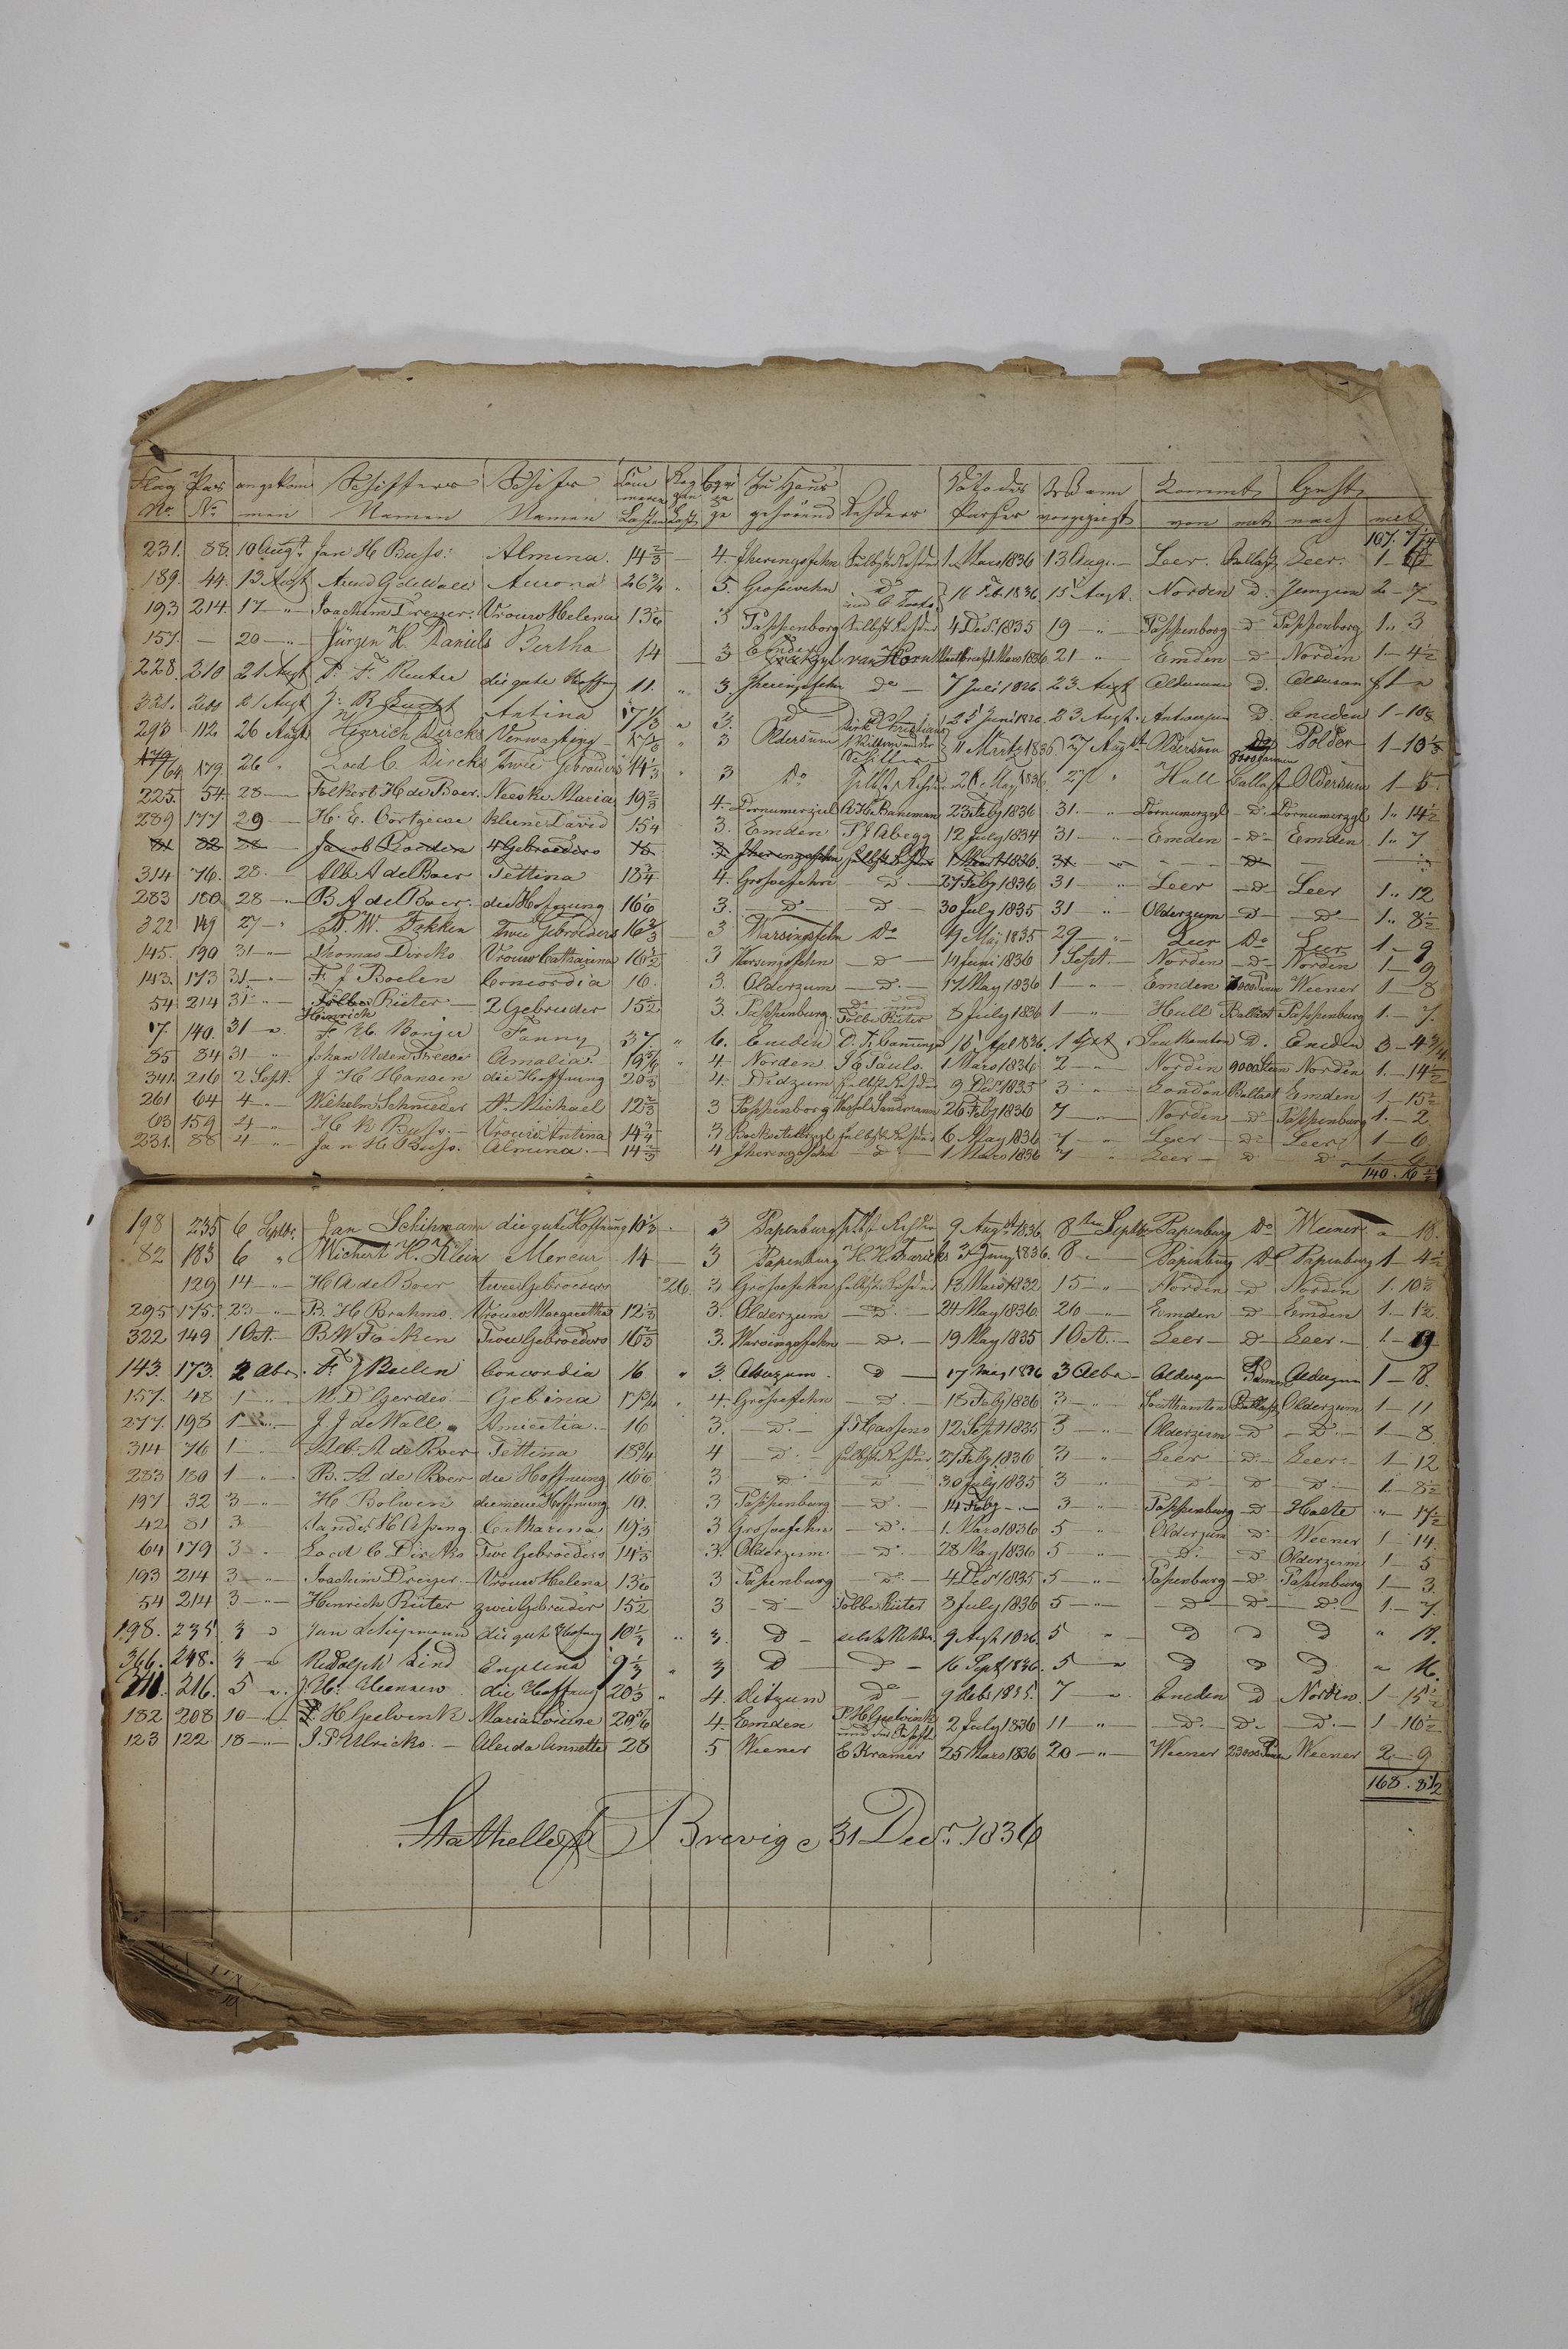 Flag Pas angekom Schiffers Schifs Com Rog Equi Zu Haus Datodes Wann Kommt Geht
No. No. men Namen Namen Lasten Last ge gehörend Rehders Passes vorgezeigt von mit nach mit
107. 7 1/4
231. 88. 10 Augt. Jan H Buss. Almina. 14 2/3 — 4. Jheringsfehn Selbst Rehder 1 Mars 1836 13 Aug. — Leer. Ballast Leer. 1 – 6
189. 44. 13 Augt Arend G deWall Aurora 26 3/4 " 5. Grosevehn do 16 Feb. 1836. 15 Augt. Norden D. Jemgum 2 – 7
193 214 17 – " – Joachim Dreyer. Vrouw Helena 13 1/6 3 Pappenborg Selbst Rehder 4 Decr. 1835 19 – " – Pappenborg – D – Pappenborg 1 " 3
157. — 20 – " – Jürgen H. Daniels Bertha 14 — 3 Emden van Horn 21 " Emden – D – Norden 1 – 4 1/2
228. 210 21 Augt D. F. Reuter die gute Hoffng 11. " 3. Jheringsfehn Do — 7 Juli 1836. 23 Augt Oldersum D.
321. 21 Augt J. R. Antina 17 1/3 " 3. D 25 Juni 1836. 23 Augt. Antwerpen D. Emden 1 – 10 1/2
298 112 26 Augt Hinrich Dircks Verwagting 17 1/3 " 3 Oldersum 11 Martz 1836 27 Augst Oldersum Polder 1 – 10 1/2
64 179. 26 " Loed C. Dircks Twee Gebroeders 14 1/3 " 3 Do Selbst Rehder 28 May 1836. 27 " Hull Ballast Oldersum 1 – 5.
225. 54. 28 — Folkert H de Boer. Neeske Maria 19 2/3 4. Dornumerziel A. H. Baneman 23 Feby 1836 31. — " — Dornumerzyl – D. Dornumerzyl 1 " 14 1/2
289 177 29 — H. E. Oortgiese kleine David 15 1/4 3. Emden P J Abegg 12 July 1834 31 — " — Emden – D – Emden 1 " 7
81 82 28 — Jacob Norden 4 Gebroeders 16 3 Jheringsfehn selbst Rehder 1 Mars 1836. 31 — " — D —
314 76. 28. — Alb. A de Boer Jettina 18 3/4 4. Grosefehn — D. — 27 Feby 1836 31 — " Leer – D – Leer 1 " 12
283 180 28 – " B. A de Boer. die Hofnung 16 1/6 3. – D – – D – 30 July 1835 31 " Olderzum – D – – D – 1 " 8 1/2
322 149 27 – " B. W. Fokken Twee Gebroeders 16 2/3 — 3 Warsingsfehn Do 19 Mai 1835 29 – " – Leer Do Leer 1 – 9
145. 190 31 – " – Thomas Dircks Vrouw Catharina 16 1/2 3 Warsingsfehn — D — 14 Juni 1836 1 Sept. — Norden – D – Norden 1 – 9
143. 173 31 – " – F. J Boelen Concordia 16. 3. Olderzum — D. — 17 May 1836 1 — " — Emden Weener 1 – 8
54 214 31 – " – Hinrich Rüter 2 Gebruder 15 1/2 3. Pappenburg. Do und Folbe Rüter 8 July 1836 1 — " Hull Ballast Pappenburg 1. – 7.
7. 140. 31 – " F. H. Bonjer Fanny 37. " 6. Emden 1 Spt. Southamton D. Emden 3 – 4 3/4
85 84 31 – " – Johan Uden Freese Amalia. – 19 5/6 " 4. Norden J C Pauls. 1 Mars 1836 2 — " — Norden Norden 1. – 14 1/2
341. 216 2 Sept. J H Hansen die Hoffnung 20 1/3 4. Didzum selbst Rehder 9 Decr 1835 3 — " — London Ballast Emden 1 – 15 1/2
261 64 4 – " Wilhelm Schmeder St. Michael 12 2/3 3 Pappenborg 26 Feby 1836 7 — " — Norden – D – Pappenburg 1. – 2.
63 159 4 – " – H R Buss. — Vrouw Antina 14 3/4 3 selbst Rehder 6 May 1836 7 — " Leer – D – Leer 1 – 6.
231. 88 4 – " – Jan H Buss. Almina. — 14 2/3 4 Jheringsfehn — D — 1 Mars 1836 7 — " Leer – D D 1 – 6
140. 16 1/2
198 235 6 Septbr. Jan Schipmann die gute Hoffnung 10 1/3 . 3 Papenburg selbst Rehder 9 August 1836. 8ten Septbr. Papenburg Do Weener " 18.
82 183 6 " Wichert H. Klein Mercur 14 — 3 Papenburg 3 Juny 1836. 8. — Papenburg Do Papenburg 1 – 4 1/2
129 14 – " – H A de Boer twee Gebroeders 26. 3. Grosefehn selbst Rehder 13 Mars 1832 15 – " – Norden – D Norden 1. 10 1/3
295 175. 23 – " – B. H Brahms. Vrouw Margaretha 12 1/3 3. Olderzum — D. — 24 May 1836. 26 – " – Emden – D – Emden 1. – 1 1/2
322 149 1 Oct. — B W Focken Twee Gebroeders 16 2/3 3. Warsingsfehn — D. — 19 May 1835 1 Oct. — Leer – – D – Leer. — 1. – 9
143. 173. 2 Obr. F. J Beelen Concordia 16 " 3. Olderzum . D — 17 May 1836 3 Octbr – Olderzum Olderzum 1 – 8.
157. 48 1 – " – M. D Gerdes – Gebina 17 3/4 " 4. Grosefehn — D. — 18 Feby 1836 3 — " – Southamton Ballast Olderzum 1 – 11
277. 198 1 – " – J. J de Wall " Amicitia. – 16 3. – D. – J. F. Hassens 12 Sept 1835 3 — " – Olderzum – D – D. – 1 – 8.
314 76 1 – " Alb. A de Boer Jettina 18 3/4 4 – D. – selbst Rehder 27 Feby 1836 3 — " – Leer – – D. – Leer. – 1 – 12
283 180 1 – " – B. A. de Boer die Hoffnung 16 1/6 3 D – D 30 July 1835 3 " D D D 1. – 8 1/2
197 32 3 – " – H Bolwen die neue Hoffnung 10. 3 Pappenburg — D. — 14 Feby – " – 3 — " – Pappenburg – D – Halte " – 17 1/2
42 81 3 Catharina 19 1/3 3 Grosefehn — D. — 1. Mars 1836 5 " Olderzum – D – Weener 1 – 14
64 179 3 – " Loed C Dircks Twe Gebroeders 14 1/3 3. Olderzum. — D. — 28 May 1836 5 – " – D. – D Olderzum 1 – 5
193 214 3 – " – Joachim Dreyer. — Vrouw Helena 13 1/6 3 Papenburg — D. — 4 Decr 1835 5 – " – Papenburg – D – Papenburg 1 – 3.
54 214 3 – " – Hinrich Rüter zwei Gebruder 15 1/2 3 – D – Folbe Rüter 8 July 1836 5 – " – D D D. 1. – 7.
198. 235. 3 – " Jan Schipmann die gute Hofnung 10 1/3 " 3. D – selbst Rehder. 9 Augt 1836. 5 " D D D " 18.
366. 248. 3 – " Rudolph Lind Engelina 9 1/3 " 3 D D – 16 Sept 1836. 5 – " D D D " 16.
341. 216. 5 – " J. H. Hansen die Hoffnung 20 1/3 " 4. ditzum Do – 9 Decbr 1835. 7 – " Emden D Norden. 1 – 15 1/2
182 208 10 – " H Gpelvink Maria Lovine 20 5/6 4. Emden P H Gpelvink 2 July 1836 11 – " – D. – D. – D. – 1 – 16 1/2
123 122 18 – " – J. P Ulricks. – Aleida Annette 28 5 Weener E Kramer 25 Mars 1836 20 – " – Weener Weener 2 – 9
168. 8 1/2
Stathelle & Brevig e 31 Decr. 1836